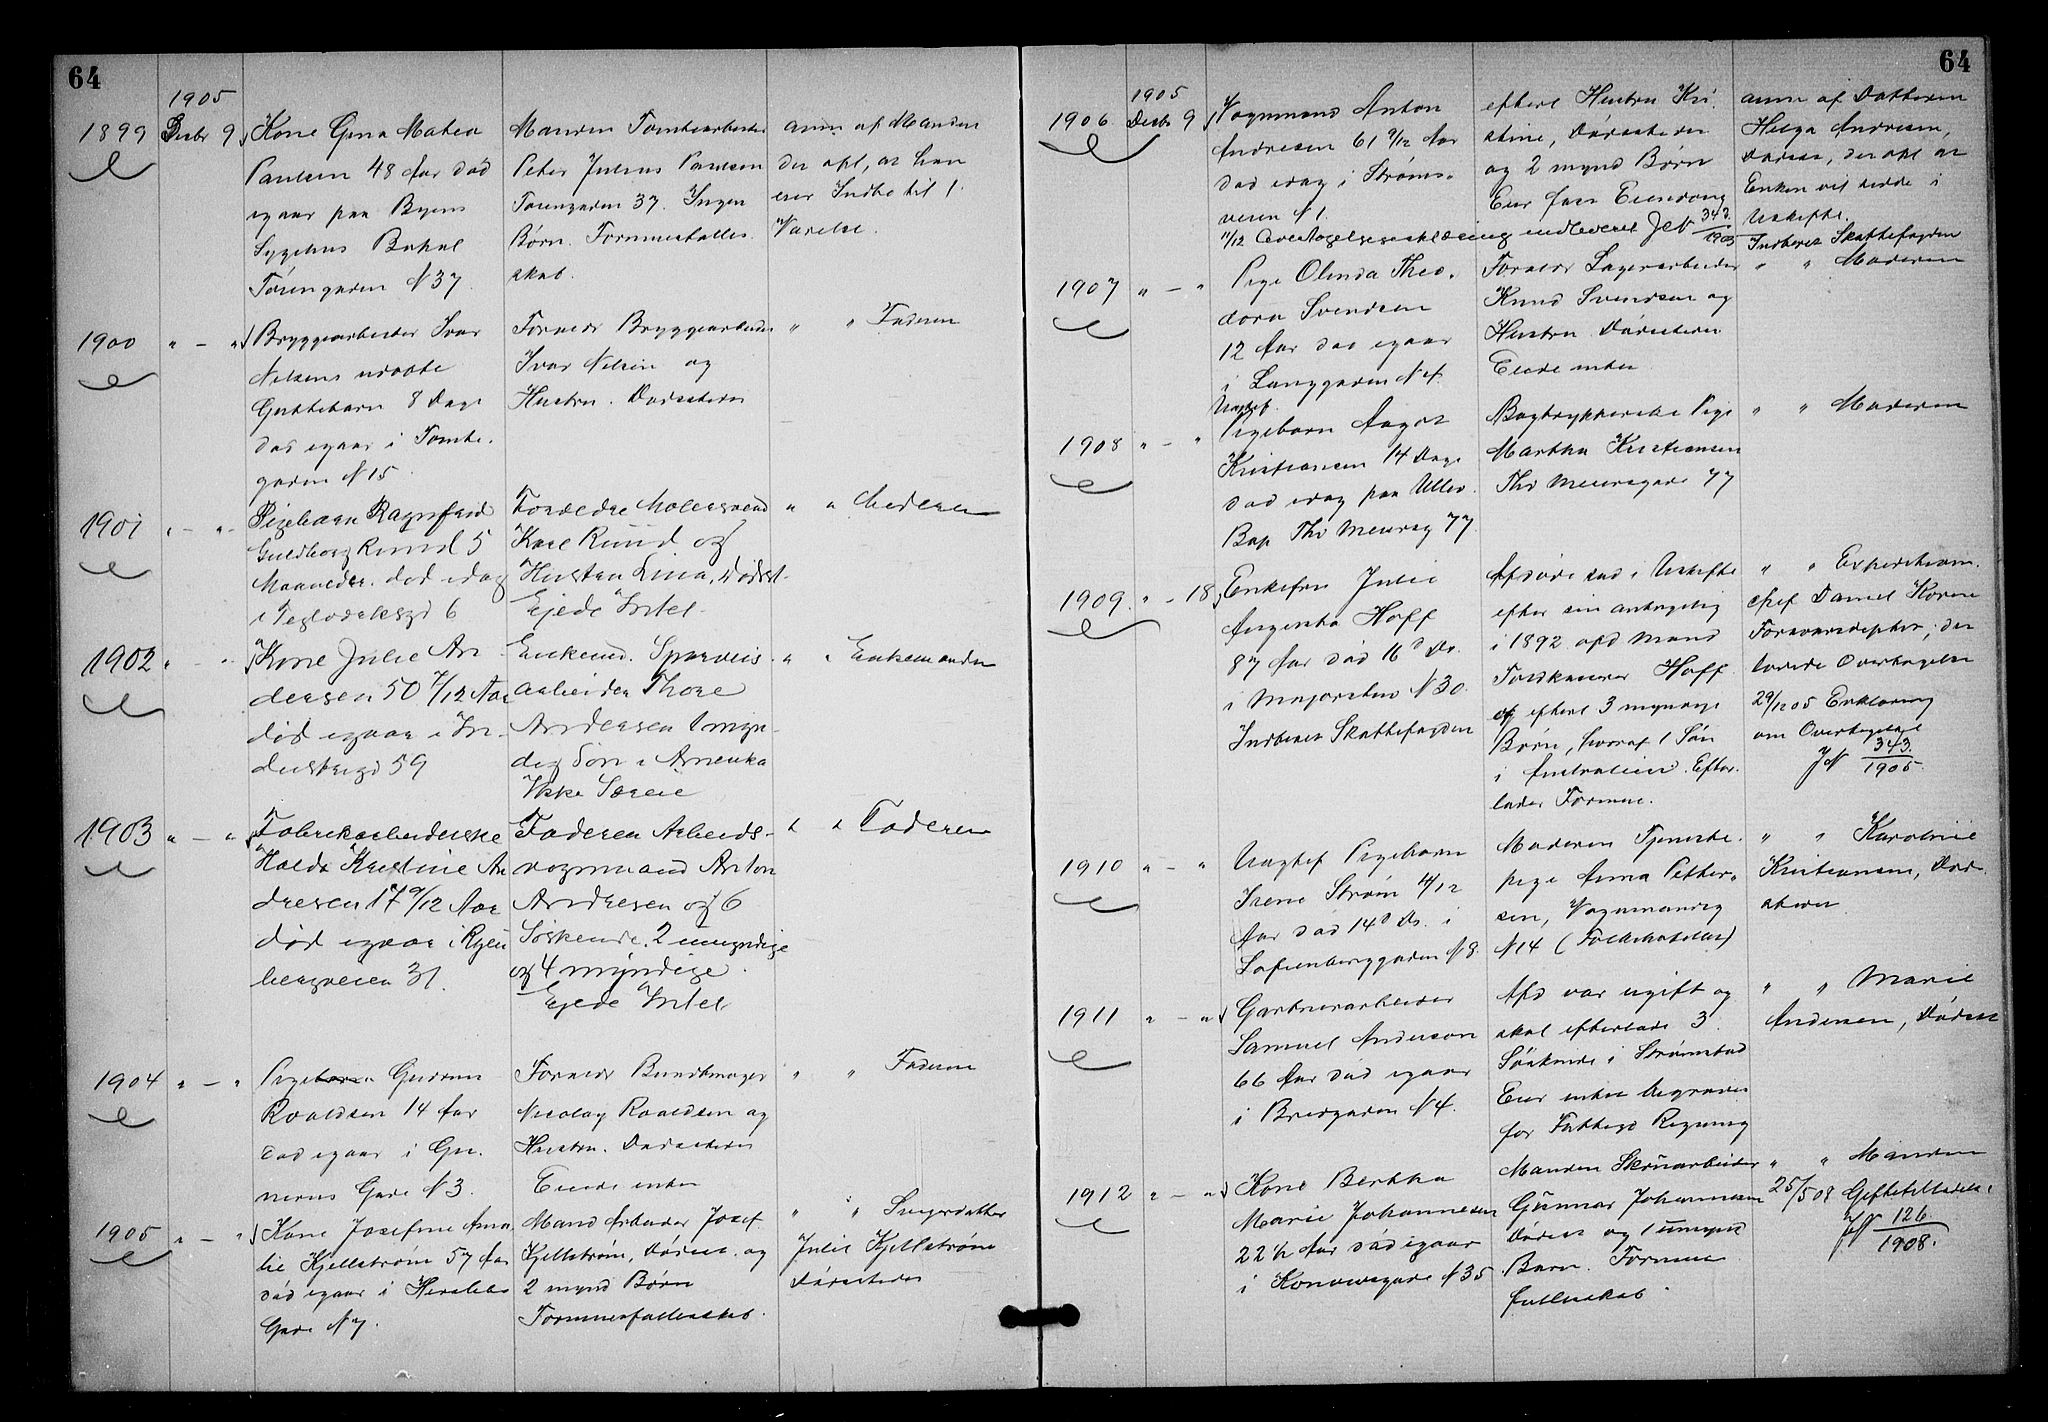 64
1905
1899 Decbr 9 Kone Gina Matea
Paulsen 48 Aar død
igaar paa Byens
Sygehus Bopæl
Torvgaden N 37
Manden Tomtearbeider
Peter Julius Paulsen
Torvgaden 37. Ingen
Børn. Formuesfælles
skab.
anm af Manden
der opl, at han
Indbo til 1
Værelse.
1900 " — " Bryggearbeider Ivar
Nilsens udøbte
Guttebarn 8 Dage
død igaar i Tomte-
gaden N 15
Forældr Bryggearbeider
Ivar Nilsen og
Hustru. Dødsstedet
" " Faderen
1901 " — " Pigebarn Ragnfrid
Guldborg Ruud 5
Maaneder. død idag
i Teglverksgd 6
Forældre Malersvend
Karl Ruud og
Hustru Lina, Dødsst.
Ejede Intet
" " Moderen
1902 " — " Kone Julie An
dersen 50 7/12 Aar
død igaar i In-
dustrigd 59
Enkemd. Sporveis-
arbeider Thore
Andersen 1 myn-
dig Søn i Amerika
Ikke Særeie
" " Enkemanden
1903 " — " Fabrikarbeiderske
Halda Kristine An
dresen 17 9/12 Aar
død igaar i Ryen
bergveien 31
Faderen Arbeids-
vognmand Anton
Andresen og 6
Søskende. 2 umyndige
og 4 myndige.
Ejede Intet
" " Faderen
1904 " — " Pigebarn Gudrun
Roaldsen 14 Aar
død igaar i Grü-
ners Gade N 3.
Forældr Bundtmager
Nicolay Roaldsen og
Hustru. Dødsstedet
Eiede intet
" " Faderen
1905 " — " Kone Josefine Ama
lie Kjellstrøm 57 Aar
død igaar i Herslebs
Gade N 7.
Mand Arbeider Josef
Kjellstrøm, Dødsst. og
2 mynd Børn
Formuesfællesskab.
" " Svigerdatter
Julie Kjellstrøm
Dødsstedet
64
1905
1906 Decbr 9 Vognmand Anton
Andresen 61 9/12 Aar
død idag i Strøms-
veien N 1.
11/12 Overtagelseserklæring indleveret JN 343/1905
efterl Hustru Kri
stine, Dødsstedet
og 2 mynd Børn
Eier fast Eiendom
anm af Datteren
Helga Andresen,
Dødsst, der opl at
Enken vil sidde i
Uskifte.
Indberet Skattefogden
1907 " — " Pige Olinda Theo-
dora Svendsen
12 Aar død igaar
i Langgaden N 4.
Forældr Lagerarbeider
Knud Svendsen og
Hustru Dødsstedet
Eiede intet
" " Moderen
1908 " — " Uægtef.
Pigebarn Aagot
Kristiansen 14 Dage
død idag paa Ullev.
Bop Thv Meyersg 77.
Bogtrykkerske Pige
Martha Kristiansen
Thv Meyersgade 77
" " Moderen
1909. " — 18 Enkefru Julie
Augusta Hoff
87 Aar død 16 d Ds.
i Majorstuv N 30.
Indberet Skattefogden
Afdøde sad i Uskifte
efter sin antagelig
i 1892 afd Mand
Toldkasserer Hoff
og efterl 3 myndige
Børn, hvoraf 1 Søn
i Australien. Efter-
lader Formue.
" " Expeditions-
chef Daniel Koren
Forsvarsdeptet; der
lovede Overtagelse
29/12 05 Erklæring
om Overtagelse
JN 343/1905.
1910 " — " Uægtef Pigebarn
Irene Strøm 11/12
Aar død 14 d Ds. i
Sofienberggaden N 8.
Moderen Tjeneste-
pige Anna Petter-
sen, Vognmandsg
N 14 (Folkehotellet)
" " Karoline
Kristiansen, Død-
stedet
1911 " — " Gartnerarbeider
Samuel Anderson
66 Aar død igaar
i Bredgaden N 4.
Afd var ugift og
skal efterlade 3
Søskende i Strømstad
Eier intet begraves
for Fattigv Regning
" " Marie
Andersen, Dødsst
1912 " — " Kone Bertha
Marie Johannesen
22 1/2 Aar død igaar
i Konowsgade N 35
Manden Skoarbeider
Gunnar Johannesen
Dødsst og 1 umynd
Barn. Formues
fællesskab.
" " Manden
25/5 08 Giftetilladelse
JN 126/1908.